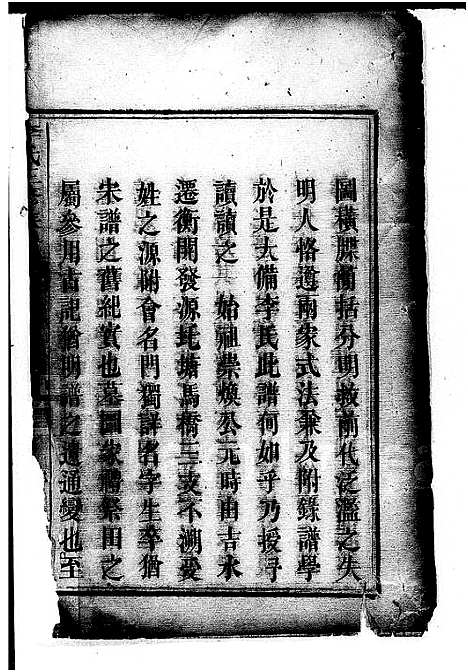 圖橫牒簡括分明救前代泛濫之失
明人恪遵兩家式法兼及附錄譜學
於是大備李氏此譜何如乎乃授讀
讀之其始祖崇煥公元時由吉水
遷衡開發源圫塘馬橋三支不溯受
姓之源附會名門獨詳名字生卒猶
宋譜之舊紀實也墓圖家禮祭田之
屬參用古說猶明譜之遺通變也至